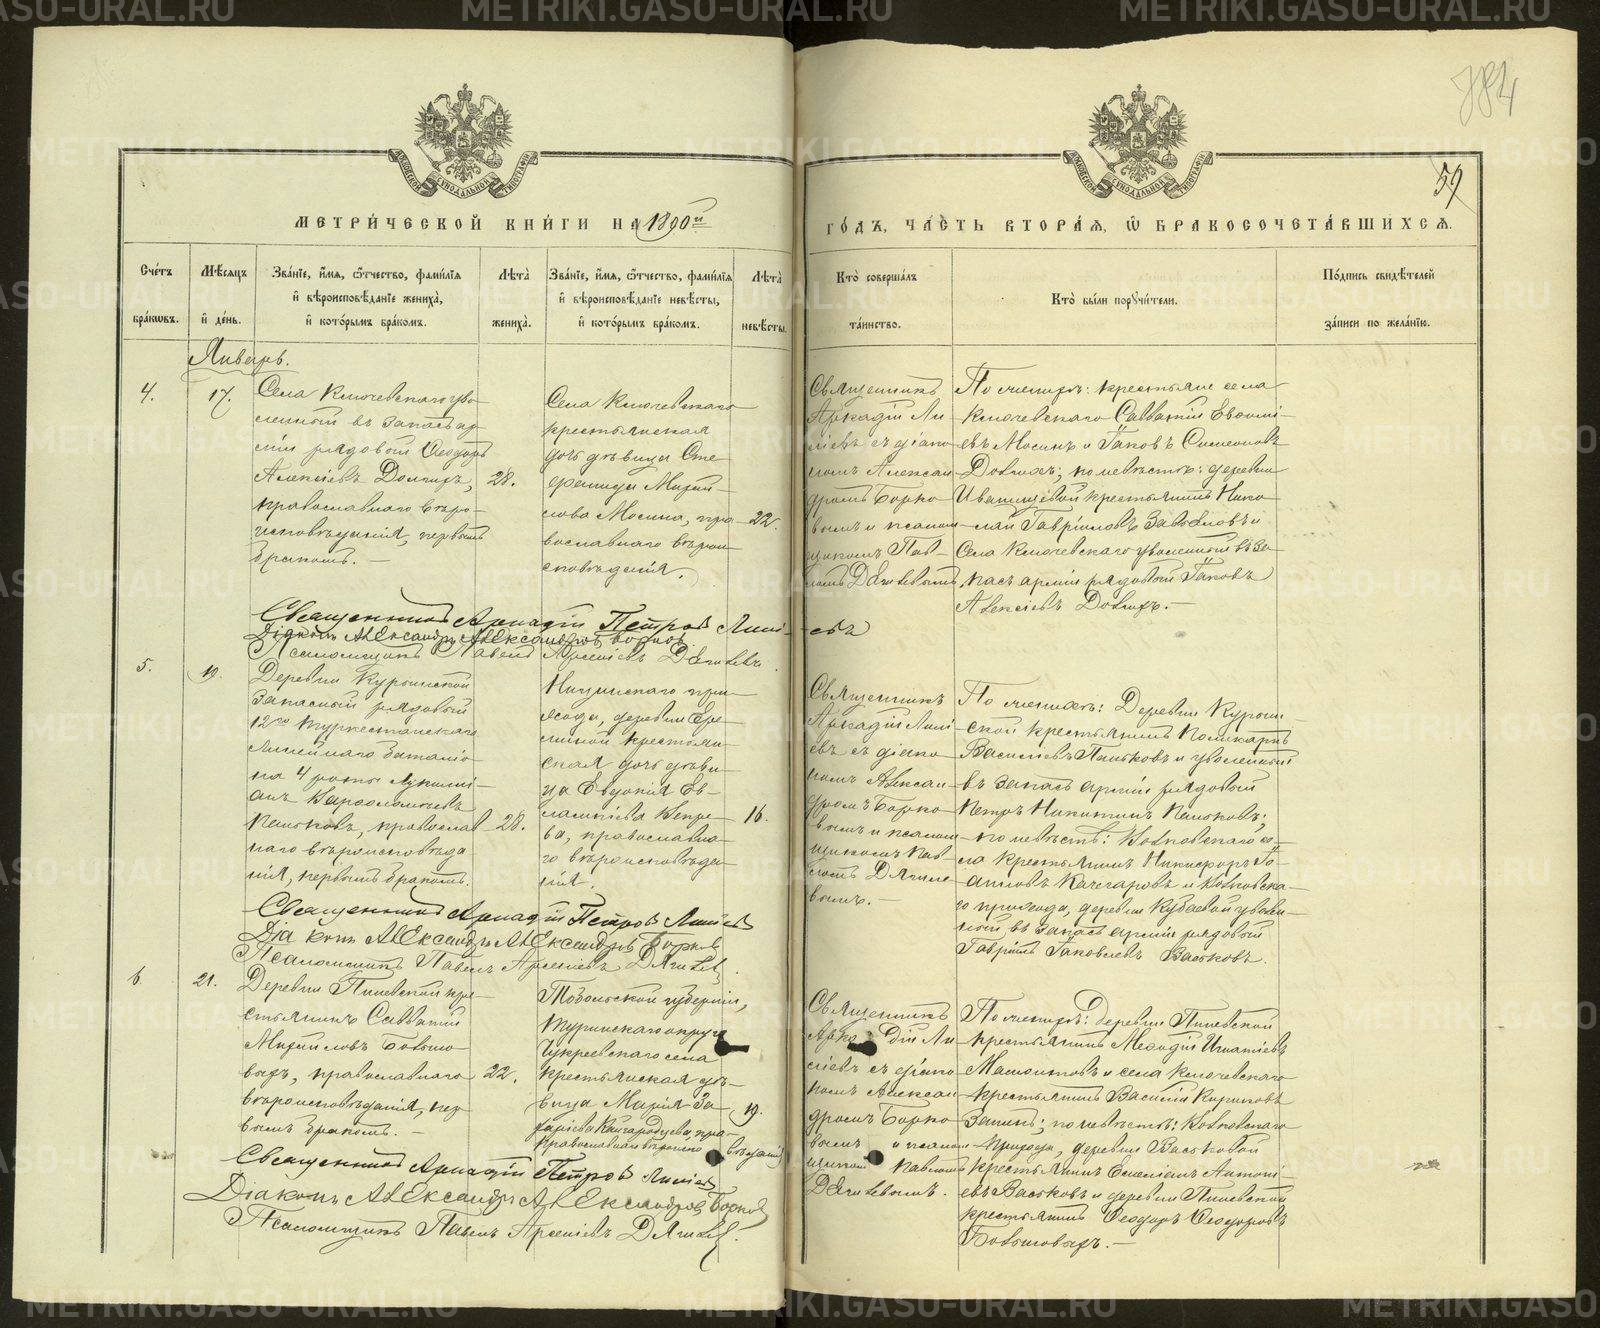 METRIKI.GASO-URAL.RU
784
59
МЕТРИ́ЧЕСКОЙ КНИ́ГИ НА 1890й
ГО́ДЪ, ЧА́СТЬ ВТОРА́Я, Ѽ БРАКОСОЧЕТА́ВШИХСЯ.
Сче́тъ бра́кѡвъ.
Мѣ́сяцъ и҆ де́нь.
Зва́нїе, и҆́мя, ѻ҆́тчество, фами́лїя
и҆ вѣроисповѣ́данїе жениха̀,
и҆ кото́рымъ бра́комъ.
Лѣта̀ жениха̀.
Зва́нїе, и҆́мя, ѻ҆́тчество, фами́лїя
и҆ вѣроисповѣ́данїе невѣ́сты,
и҆ кото́рымъ бра́комъ.
Лѣта̀ невѣ́сты.
Кто̀ соверша́лъ та́инство.
Кто̀ бы́ли порꙋчи́тели.
По́дпись свидѣ́телей
за́писи по жела́нїю.
Январь.
4.
17.
Села Ключевскаго уво-
ленный въ запасъ ар-
міи рядовой Ѳеодоръ
Алексіевъ Долгихъ,
православнаго вѣро-
исповѣданія, первымъ
бракомъ. —
28.
Села Ключевскаго
крестьянская
дочь дѣвица Сте-
фанида Михай-
лова Мосина, пра-
вославнаго вѣрои-
сповѣданія.
22.
Священникъ
Аркадій Ли-
сіевъ съ діако-
номъ Алексан-
дромъ Борко-
вымъ и псалом-
щикомъ Пав-
ломъ Дягилевымъ
По женихѣ: крестьяне села
Ключевскаго Савватій Евѳимі-
евъ Мосинъ и Іаковъ Симеоновъ
Долгихъ; по невѣстѣ: деревни
Иванищевой крестьянинъ Нико-
лай Гавріиловъ Завьяловъ и
Села Ключевскаго уволенный въ за-
пасъ арміи рядовой Іаковъ
Алексіевъ Долгихъ. —
Священникъ Аркадій Петровъ Лисі-евъ
Діаконъ Александръ Александровъ Борковъ
Псаломщикъ Павелъ Арсеніевъ Дягилевъ
5.
19.
Деревни Курьинской
запасный рядовой
12го Туркестанскаго
Линейнаго баталіо-
на 4 роты Лукилі-
анъ Варѳоломеевъ
Паньковъ, православ-
наго вѣроисповѣда-
нія, первымъ бракомъ.
28.
Ницинскаго при-
хода, деревни Ере-
миной крестьян-
ская дочь дѣви-
ца Евдокія Ев-
лампіева Вепре-
ва, православна-
го вѣроисповѣда-
нія.
16.
Священникъ
Аркадій Лисі-
евъ съ діако-
номъ Алексан-
дромъ Борко-
вымъ и псалом-
щикомъ Пав-
ломъ Дягиле-
вымъ. —
По женихѣ: Деревни Курьин-
ской крестьянинъ Поликарпъ
Василіевъ Паньковъ и уволенный
въ запасъ арміи рядовой
Петръ Никитинъ Паньковъ;
по невѣстѣ: Волковскаго се-
ла крестьянинъ Никифоръ Іо-
анновъ Качегаровъ и Волковска-
го прихода, деревни Кубаевой уволен-
ный въ запасъ арміи рядовой
Гавріилъ Іаковлевъ Васьковъ.
Священникъ Аркадій Петровъ Лисіевъ
Діаконъ Александръ Александровъ Борковъ
Псаломщикъ Павелъ Арсеніевъ Дягилевъ.
6.
21.
Деревни Пиневской кре-
стьянинъ Савватій
Михайловъ Большо-
выхъ, православнаго
вѣроисповѣданія, пер-
вымъ бракомъ. —
22.
Тобольской губерніи,
Туринскаго округа
Чукреевскаго села
крестьянская дѣ-
вица Марія За-
харіева Кайгородцева, пра-
православнаго вѣроиспо-
вѣданія
19.
Священникъ
Аркадій Ли-
сіевъ съ діако-
номъ Алексан-
дромъ Борко-
вымъ и псалом-
щикомъ Павломъ
Дягилевымъ.
По женихѣ: деревни Пиневской
крестьянинъ Меѳодій Игнатіевъ
и села Ключевскаго
крестьянинъ Василій Кириковъ
; по невѣстѣ: Волковскаго
прихода, деревни Васьковой
крестьянинъ Емеліанъ Антоні-
евъ Васьковъ и деревни Пиневской
крестьянинъ Ѳеодоръ Ѳеодоровъ
Большовыхъ. —
Священникъ Аркадій Петровъ Лисіевъ
Діаконъ Александръ Александровъ Борковъ
Псаломщикъ Павелъ Арсеніевъ Дягилевъ.